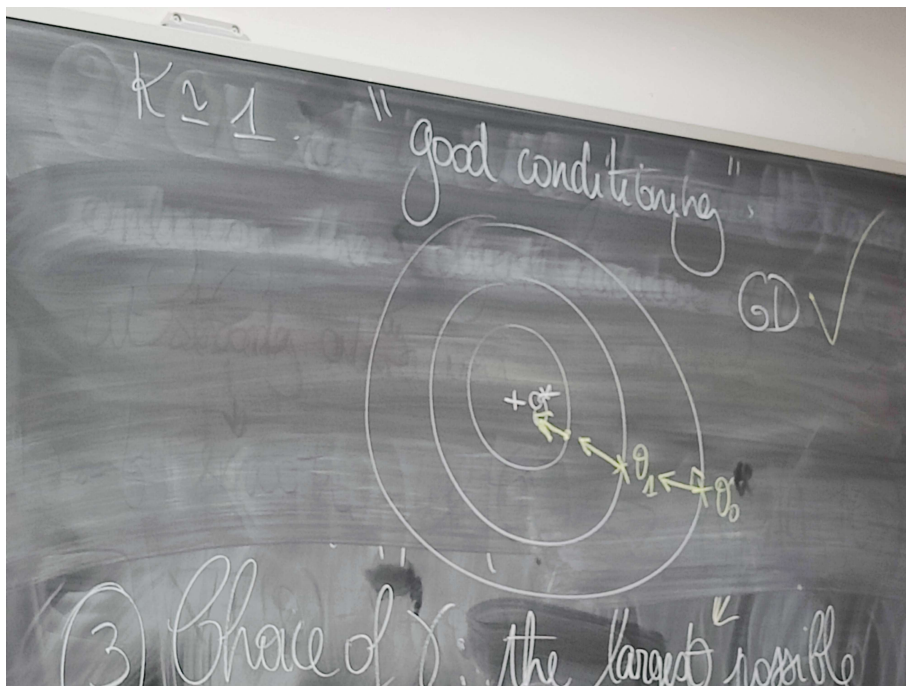 K ≃ 1. "good conditioning".
GD ✓
+ θ*
θ₁
θ₀
③ Choice of γ: the largest possible